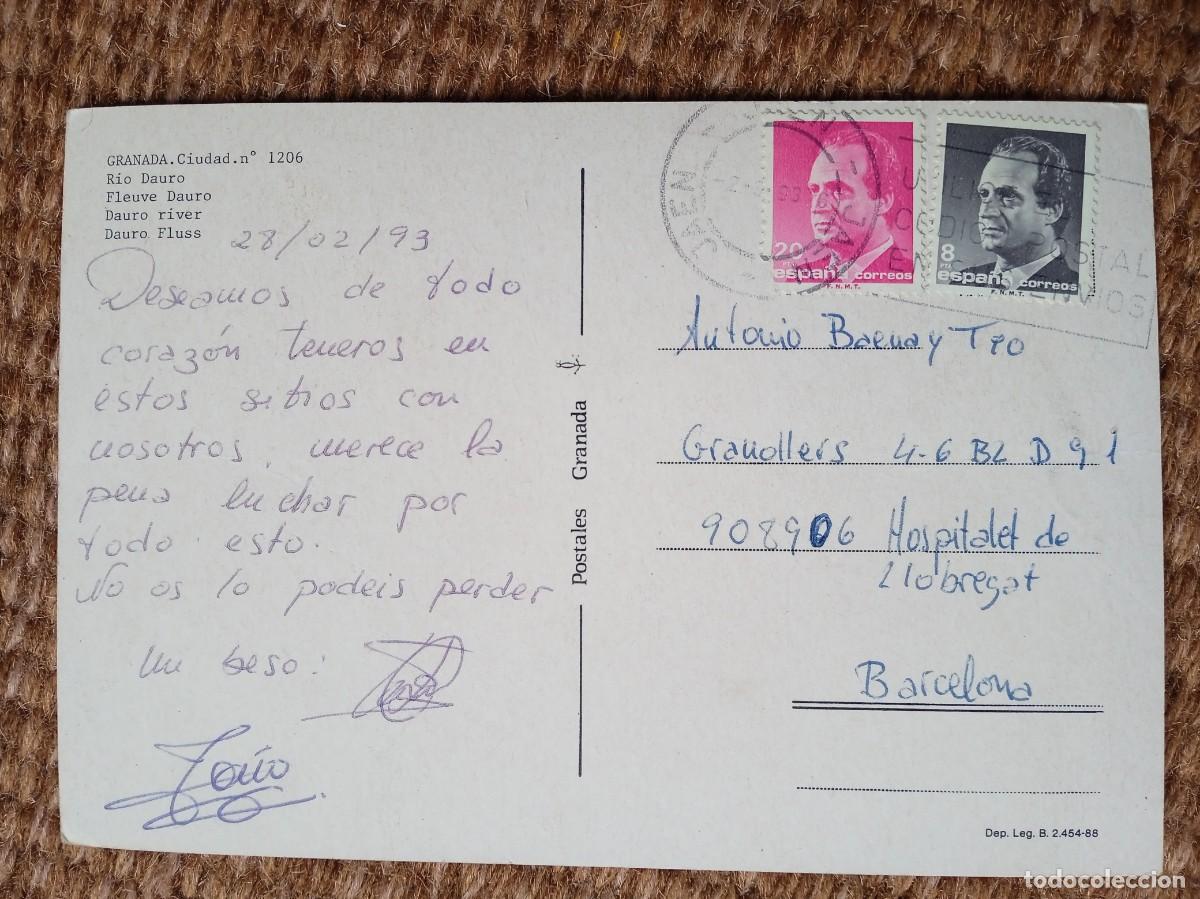 GRANADA.Ciudad.n° 1206
Rio Dauro
Fleuve Dauro
Dauro river
Dauro Fluss
28/02/93
Deseamos de todo
corazón teneros en
estos sitios con
nosotros, merece la
pena luchar por
todo esto.
No os lo podeis perder
Un beso:
Toño
Postales Granada
JAEN
20 PTA
españa correos
F.N.M.T.
8 PTA
españa correos
F.N.M.T.
Antonio Baena y Tro
Granollers 4-6 BL D 9 1
908906 Hospitalet de
Llobregat
Barcelona
Dep. Leg. B. 2.454-88
todocoleccion